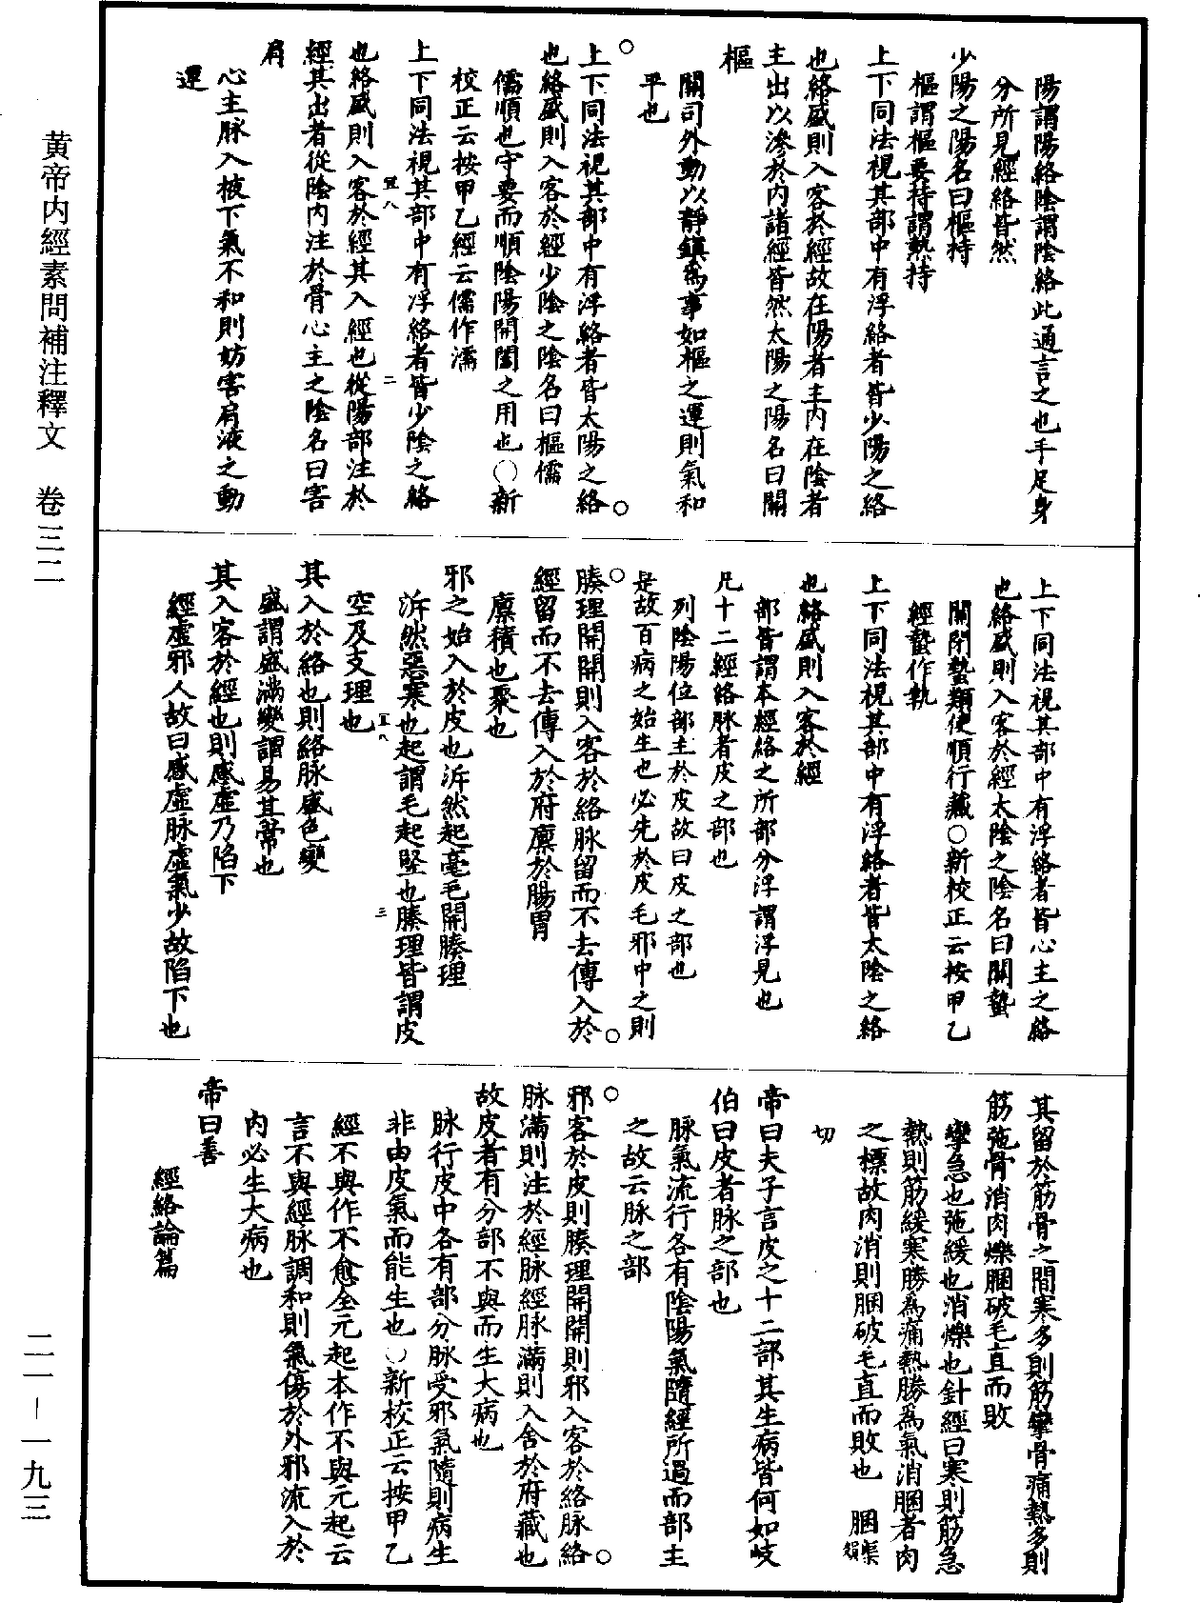 黃帝內經素問補注釋文　卷三二
二一－一九三
陽謂陽絡陰謂陰絡此通言之也手足身
分所見經絡皆然
少陽之陽名曰樞持
樞謂樞要持謂執持
上下同法視其部中有浮絡者皆少陽之絡
也絡盛則入客於經故在陽者主內在陰者
主出以滲於內諸經皆然太陽之陽名曰關
樞
關司外動以靜鎮為事如樞之運則氣和
平也
上下同法視其部中有浮絡者皆太陽之絡
也絡盛則入客於經少陰之陰名曰樞儒
儒順也守要而順陰陽開闔之用也○新
校正云按甲乙經云儒作濡
上下同法視其部中有浮絡者皆少陰之絡
也絡盛則入客於經其入經也從陽部注於
經其出者從陰內注於骨心主之陰名曰害
肩
心主脉入掖下氣不和則妨害肩液之動
運
上下同法視其部中有浮絡者皆心主之絡
也絡盛則入客於經太陰之陰名曰關蟄
關閉蟄類使順行藏○新校正云按甲乙
經蟄作執
上下同法視其部中有浮絡者皆太陰之絡
也絡盛則入客於經
部皆謂本經絡之所部分浮謂浮見也
凡十二經絡脉者皮之部也
列陰陽位部主於皮故曰皮之部也
是故百病之始生也必先於皮毛邪中之則
腠理開開則入客於絡脉留而不去傳入於
經留而不去傳入於府廩於腸胃
廩積也聚也
邪之始入於皮也泝然起毫毛開腠理
泝然惡寒也起謂毛起豎也腠理皆謂皮
空及文理也
其入於絡也則絡脉盛色變
盛謂盛滿變謂易其常也
其入客於經也則感虛乃陷下
經虛邪人故曰感虛脉虛氣少故陷下也
其留於筋骨之間寒多則筋攣骨痛熱多則
筋弛骨消肉爍䐃破毛直而敗
攣急也弛緩也消爍也針經曰寒則筋急
熱則筋緩寒勝為痛熱勝為氣消䐃者肉
之標故肉消則䐃破毛直而敗也　䐃渠殞
切
帝曰夫子言皮之十二部其生病皆何如岐
伯曰皮者脉之部也
脉氣流行各有陰陽氣隨經所過而部主
之故云脉之部
邪客於皮則腠理開開則邪入客於絡脉絡
脉滿則注於經脉經脉滿則入舍於府藏也
故皮者有分部不與而生大病也
脉行皮中各有部分脉受邪氣隨則病生
非由皮氣而能生也○新校正云按甲乙
經不與作不愈全元起本作不與元起云
言不與經脉調和則氣傷於外邪流入於
內必生大病也
帝曰善
經絡論篇